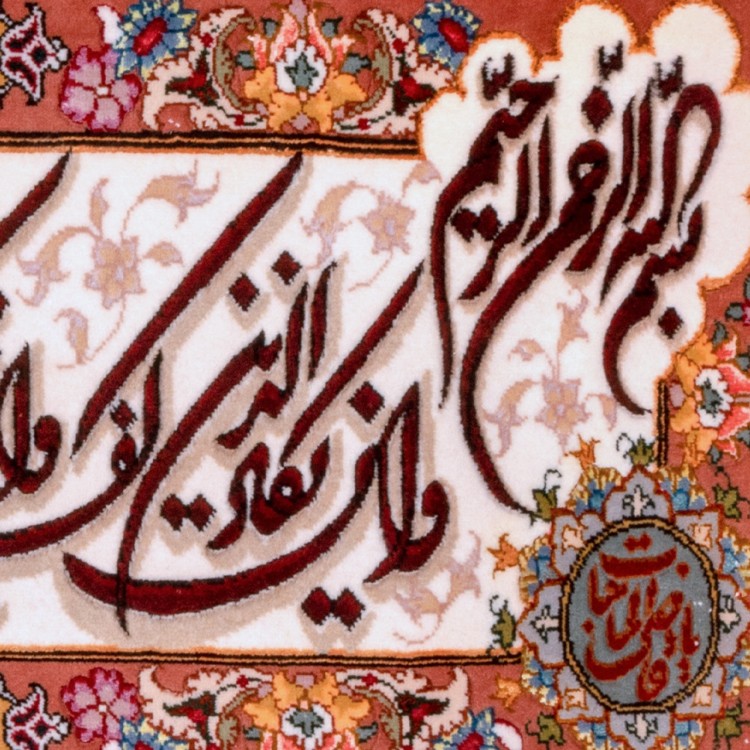 بسم الله الرحمن الرحیم
وان یکاد الذین کفروا
یا قاضی الحاجات